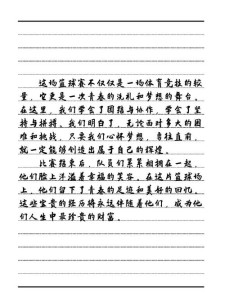 这场篮球赛不仅仅是一场体育竞技的较
量，它更是一次青春的洗礼和梦想的舞台。
在这里，我们学会了团结与协作，学会了
坚持与拼搏。我们明白了，无论面对多大的困
难和挑战，只要我们心怀梦想，勇往直前，
就一定能够创造出属于自己的辉煌。
比赛结束后，队员们紧紧相拥在一起，
他们脸上洋溢着幸福的笑容。在这片篮球场
上，他们留下了青春的足迹和美好的回忆。
这些宝贵的经历将永远伴随着他们，成为他
们人生中最珍贵的财富。